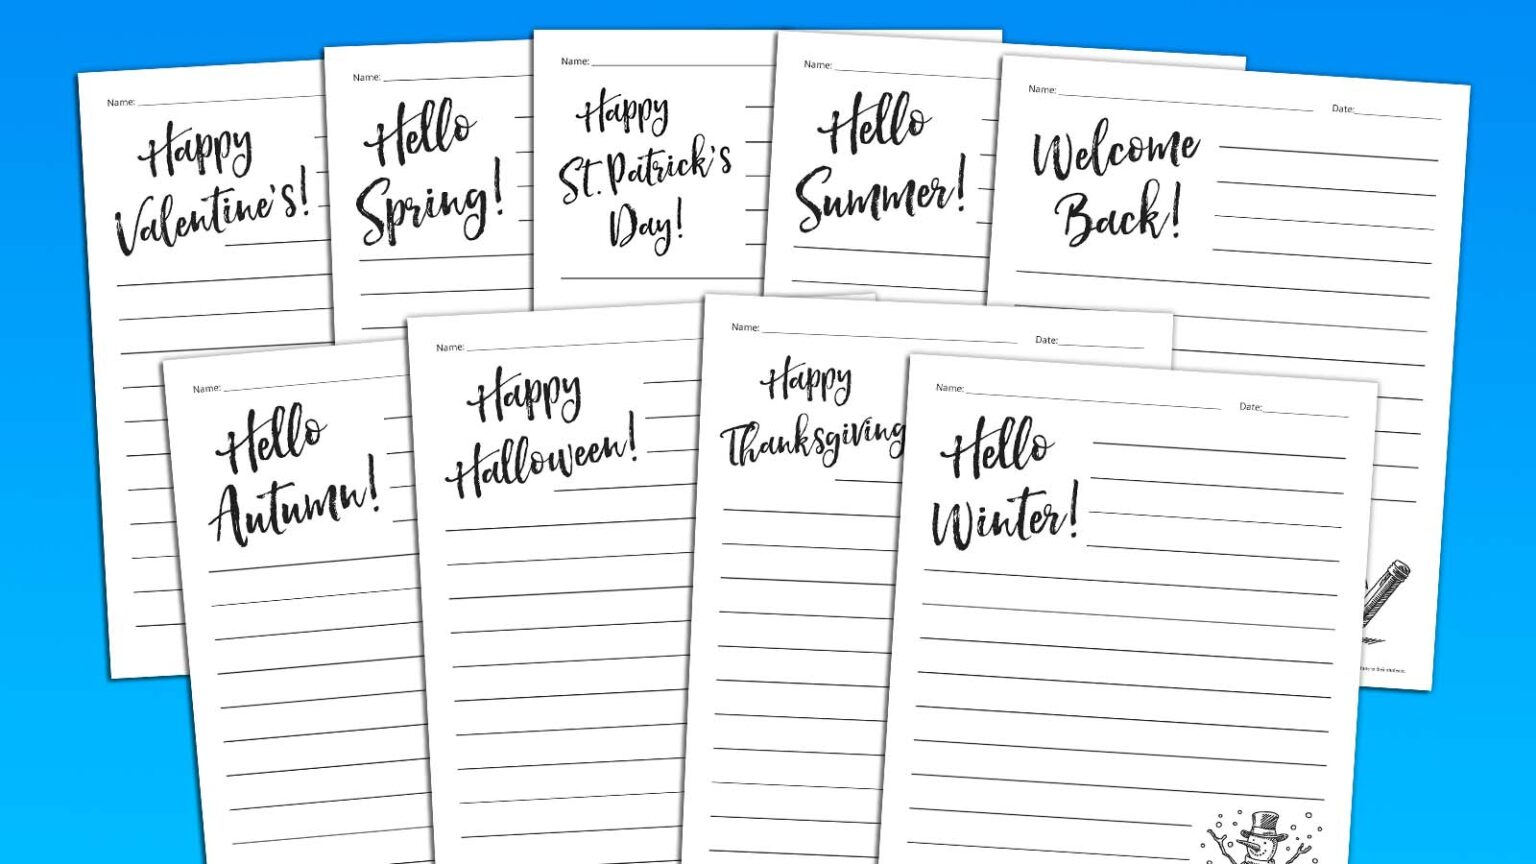 Name:
Happy
Valentine's!
Name:
Hello
Spring!
Name:
Happy
St. Patrick's
Day!
Name:
Hello
Summer!
Name: Date:
Welcome
Back!
Name:
Hello
Autumn!
Name:
Happy
Halloween!
Name: Date:
Happy
Thanksgiving
Name: Date:
Hello
Winter!